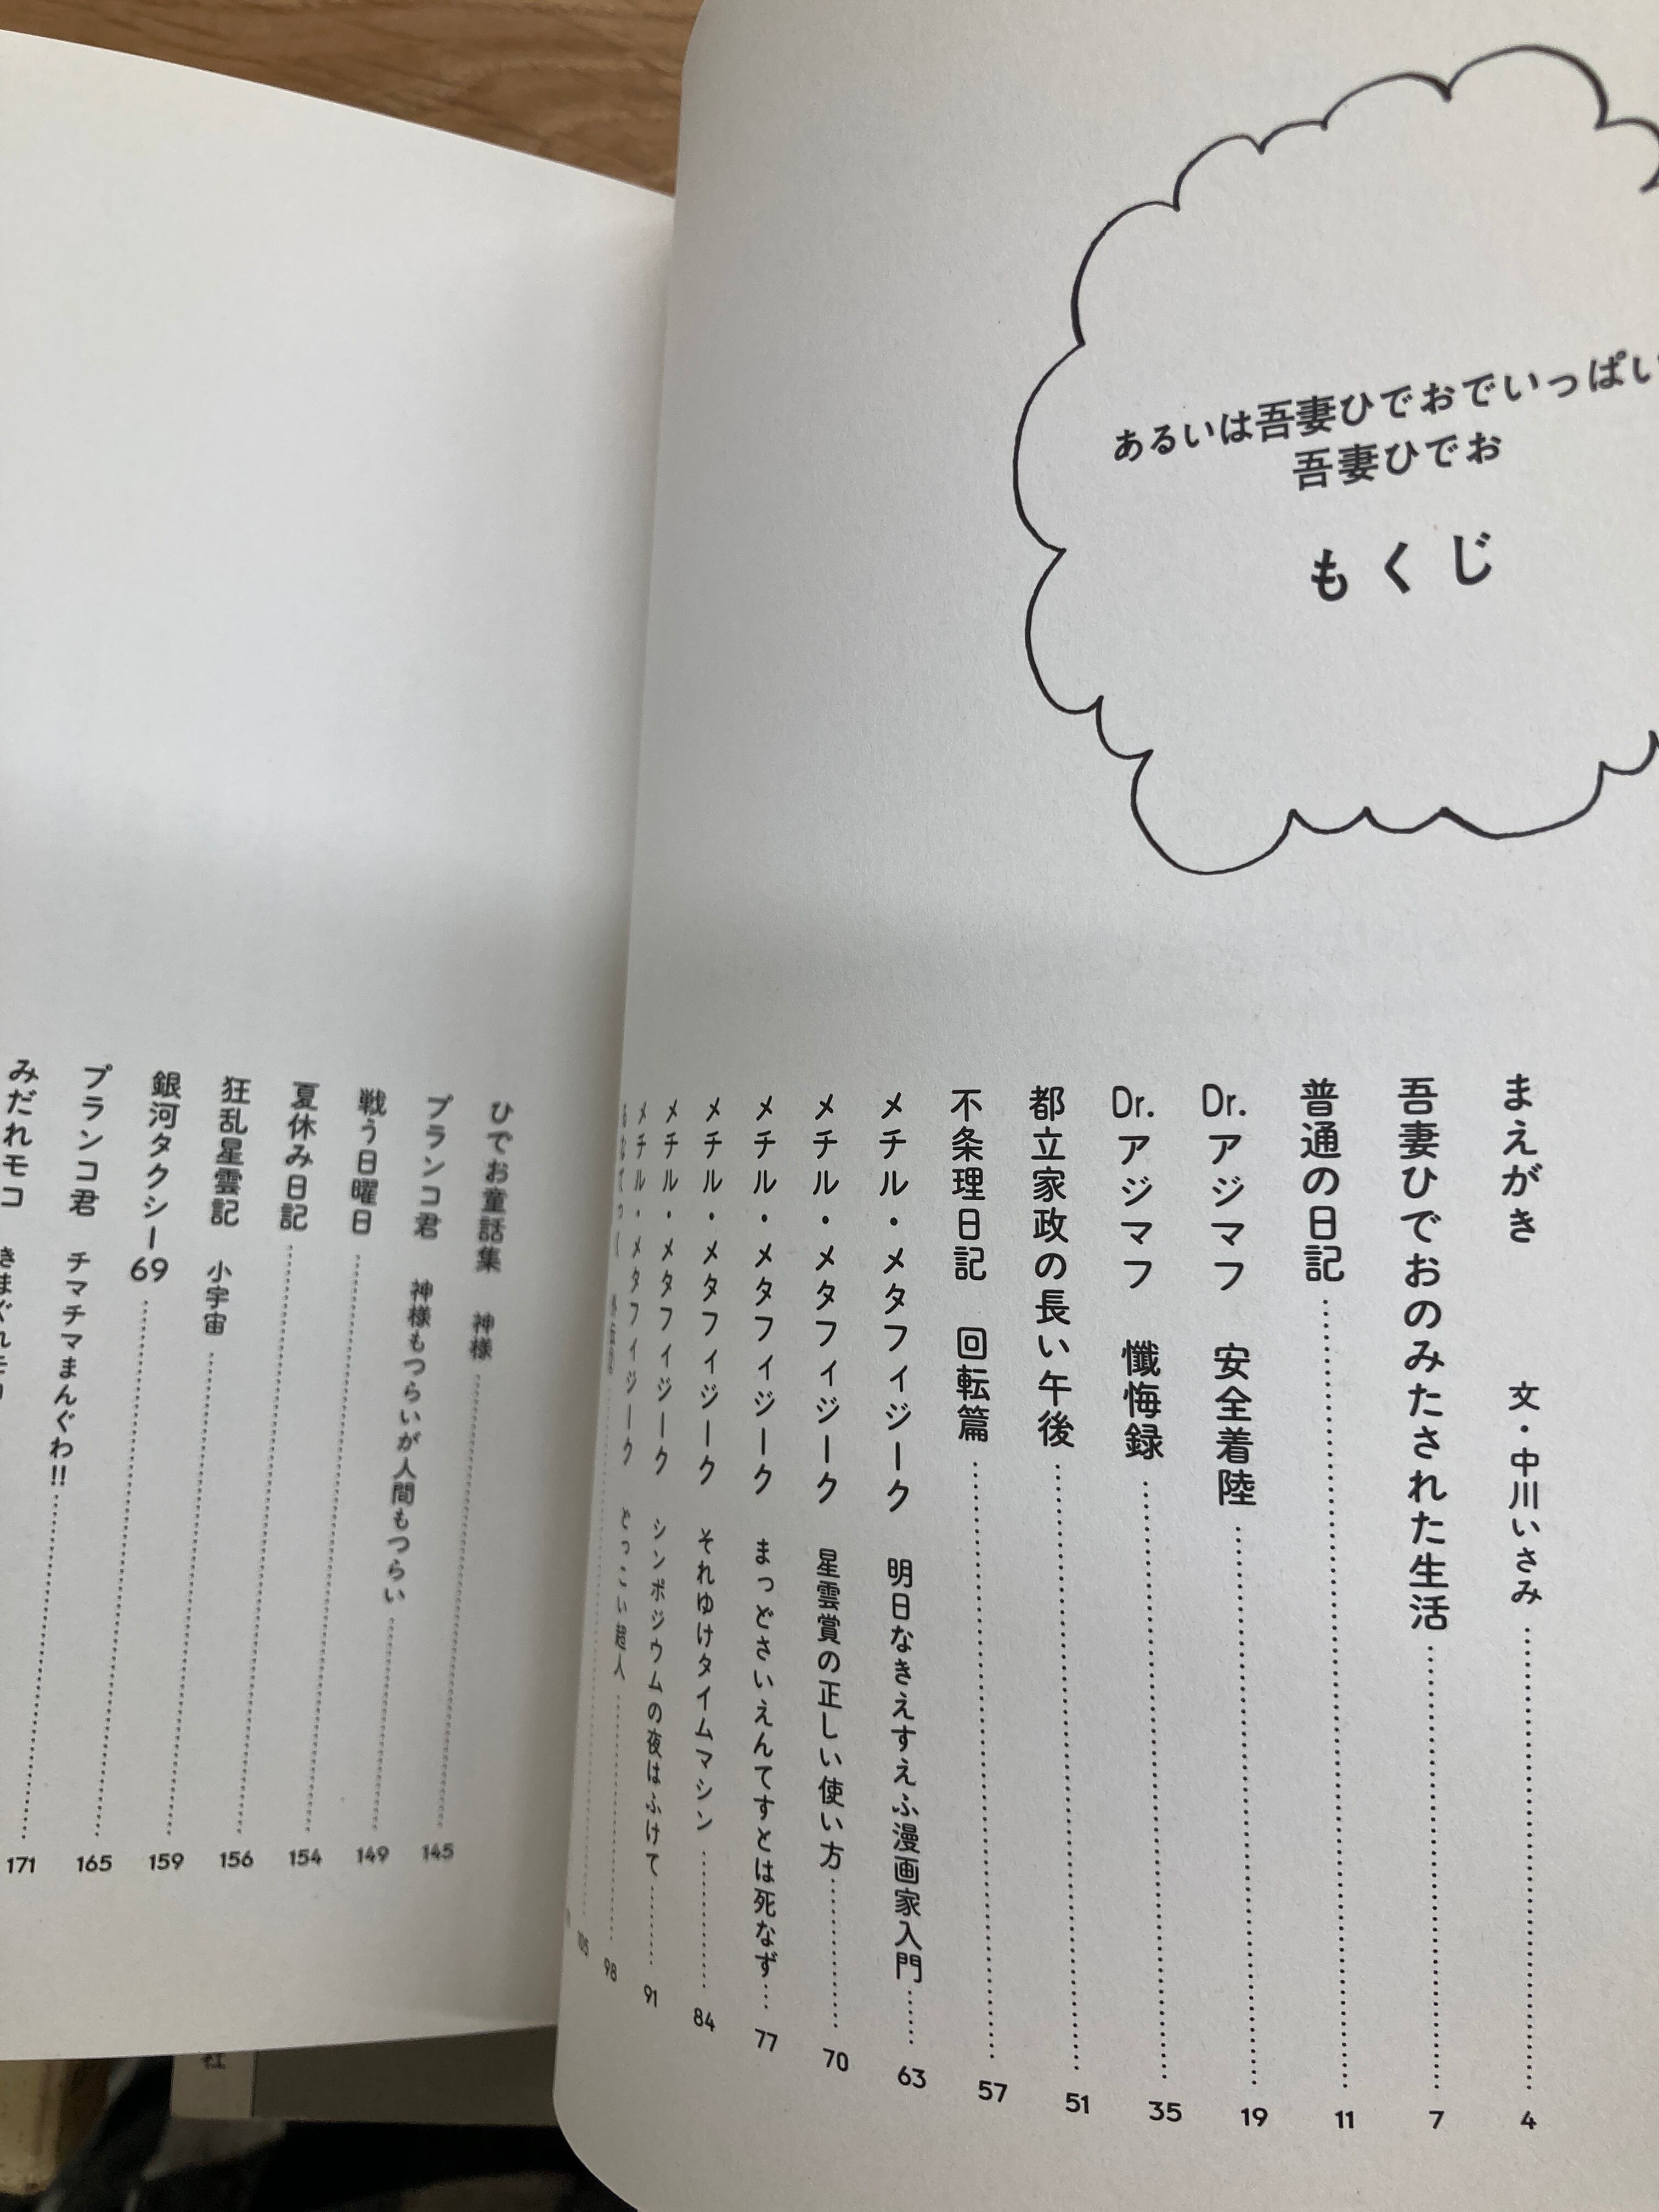 あるいは吾妻ひでおでいっぱい
吾妻ひでお
もくじ
まえがき 文・中川いさみ 4
吾妻ひでおのみたされた生活 7
普通の日記 11
Dr.アジマフ 安全着陸 19
Dr.アジマフ 懺悔録 35
都立家政の長い午後 51
不条理日記 回転篇 57
メチル・メタフィジーク 明日なきえすえふ漫画家入門 63
メチル・メタフィジーク 星雲賞の正しい使い方 70
メチル・メタフィジーク まっどさいえんてすとは死なず 77
メチル・メタフィジーク それゆけタイムマシン 84
メチル・メタフィジーク シンポジウムの夜はふけて 91
メチル・メタフィジーク どっこい超人 98
105
ひでお童話集 神様 145
プランコ君 神様もつらいが人間もつらい 149
戦う日曜日 154
夏休み日記 156
狂乱星雲記 小宇宙 159
銀河タクシー69 165
プランコ君 チマチマまんぐわ!! 171
みだれモコ
社